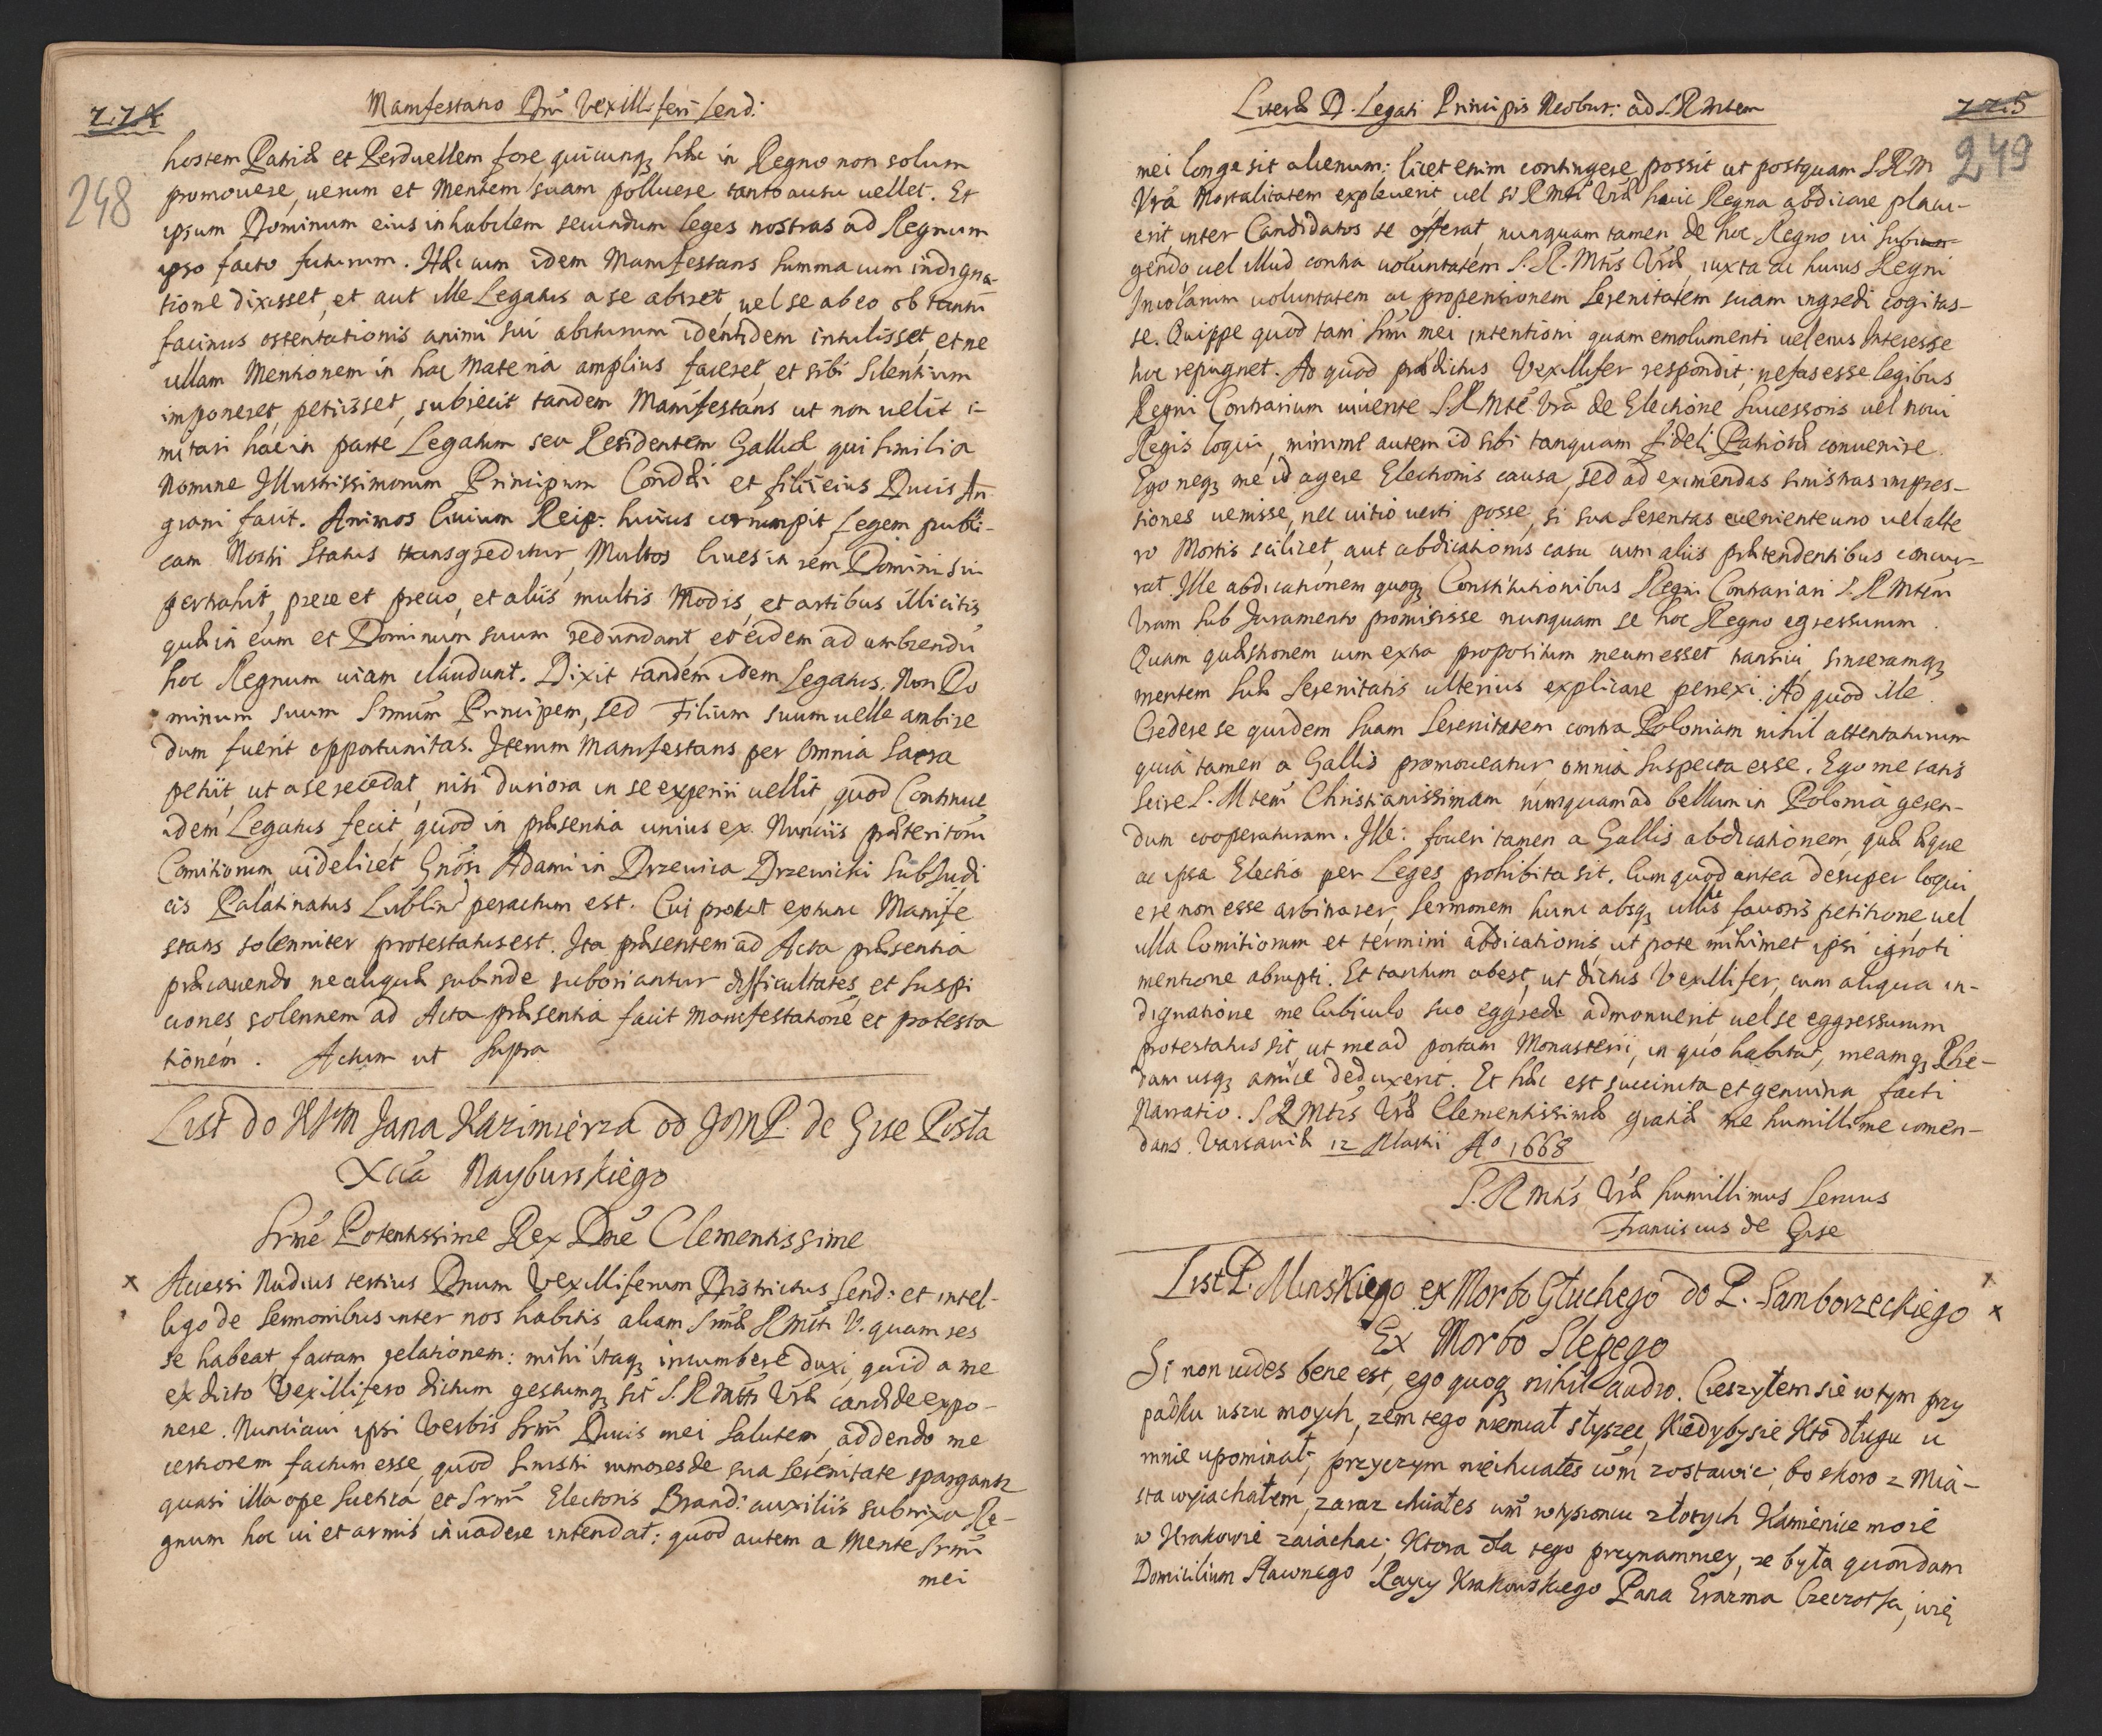 224
Manifestatio Dni Vexilliferi Send:
248
hostem Patriæ et Perduellem fore quicunq3 hæc in Regno non solum
promouere, uerum et Mentem suam polluere tanto ausu uellet. Et
ipsum Dominum eius inhabilem secundum leges nostras ad Regnum
ipso facto futurum. Hæc cum idem Manifestans summa cum indigna-
tione dixisset, et aut ille Legatus a se abiret, uel se ab eo ob tantū
facinus ostentationis animi sui abiturum identidem intulisset, et ne
ullam Mentionem in hac Materia amplius faceret, et sibi Silentium
imponeret, petiisset, subiecit tandem Manifestans ut non uelit i-
mitari hac in parte Legatum seu Residentem Galliæ, qui similia
Nomine Illustrissimorum Principum Condæi et filii eius Ducis An-
guiani facit. Animos Ciuium Reip: huius corrumpit Legem publi-
cam Nostri Status transgreditur, Multos Ciues in rem Domini sui
pertrahit, prece et precio, et aliis multis Modis, et artibus illicitis,
quæ in eum et Dominum suum redundant, et eidem ad ambiendū
hoc Regnum uiam claudunt. Dixit tandem idem Legatus. Non Do
minum suum Srnum Principem, sed Filium suum uelle ambire
dum fuerit opportunitas. Iterum Manifestans per Omnia Sacra
petiit, ut a se recedat, nisi duriora in se experiri uellit, quod Continue
idem Legatus fecit, quod in præsentia unius ex Nunciis præteritorū
Comitiorum uidelicet Gnosi Adami in Drzewica Drzewicki SubJudi
cis Palatinatus Lublin peractum est. Cui prout extunc Manife
stans solenniter protestatus est. Ita præsentem ad Acta præsentia
præcauendo ne aliquæ subinde suboriantur difficultates, et Suspi
ciones solennem ad Acta præsentia facit Manifestationē et protesta
tionem. Actum ut Supra
List do KJM Jana Kazimierza od JOMP. de Gise Posła
Xcia Nayburskiego
Srnē Potentissime Rex Dnē Clementissime
x Accessi Nudius tertius Dnum Vexilliferum Districtus Send: et intel-
ligo de Sermonibus inter nos habitis, aliam Srnæ RMti V. quam res
se habeat, factam relationem: mihi itaq3 incumbere duxi, quid a me
ex dicto Vexillifero dictum gestumq3 sit S. RMtti Vræ candide expo-
nere. Nunciaui ipsi Verbis Srmi Ducis mei Salutem, addendo me
certiorem factum esse, quod sinistri rumores de sua Serenitate spargantr
quasi illa ope Suetica, et Srmi Electoris Brand: auxiliis subnixa Re-
gnum hoc ui et armis inuadere intendat: quod autem a Mente Srmi
mei
Literæ D. Legati Principis Neobur: ad S.R Mtem
225
249
mei longe sit alienum; licet enim contingere possit ut postquam S.R.M
Vra Mortalitatem expleuerit uel si RMti Vræ huic Regna abdicare placu-
erit, inter Candidatos se offerat, nunquam tamen de hoc Regno ui subiun-
gendo uel illud contra uoluntatem S. R. Mtis Vræ, iuxta ac huius Regni
Incolarum uoluntatem ac propensionem Serenitatem suam ingredi cogitas-
se. Quippe quod tam Srmi mei intentioni quam emolumenti uel eius Interesse
hoc repugnet. Ad quod prædictus Vexillifer respondit; nefas esse legibus
Regni Contrarium uiuente S.R Mtē Vra de Electione Successoris uel noui
Regis loqui, minime autem id sibi tanquam fideli Patriotæ conuenire.
Ego neq3 me id agere Electionis causa, sed ad eximendas sinistras impres-
siones uenisse, nec uitio uerti posse, si sua Serentas eueniente uno uel alte
ro Mortis scilicet, aut abdicationis casu cum aliis prætendentibus concur-
rat. Ille abdicationem quoq3 Constitutionibus Regni Contrariari S. R Mtem
Vram sub Juramento promisisse nunquam se hoc Regno egressurum.
Quam quæstionem cum extra propositum meum esset transiui, sinceramq3
mentem Suæ Serenitatis ulterius explicare perrexi. Ad quod ille
Credere se quidem Suam Serenitatem contra Poloniam nihil attentaturum
quia tamen a Gallis promoueatur, omnia Suspecta esse. Ego me satis
Scire S. Mtem Christianissimam nunquam ad bellum in Polonia geren-
dum cooperaturam. Ille: foueri tamen a Gallis abdicationem, quæ æque
ac ipsa Electio per Leges prohibita sit. Cum quod antea desuper loqui
ere non esse arbitrarer, Sermonem hunc absq3 ullis favoris petitione, uel
ulla Comitiorum et termini abdicationis ut pote mihimet ipsi ignoti
mentione abrupti. Et tantum abest, ut dictus Vexillifer, cum aliqua in-
dignatione me Cubiculo suo eggredi admonuerit uel se eggressurum
protestatus sit, ut me ad portam Monasterii, in quo habitat, meamq3 Rhe-
dam usq3 amice deduxerit. Et hæc est succincta et genuina facti
Narratio. S R Mtis Vræ Clementissimæ gratiæ me humillime comen-
dans. Varsauiæ 12 Martii Ao 1668
S. R Mtis Vræ humillimus Seruus
Franciscus de Gise
List P. Minskiego ex Morbo Głuchego do P. Samborzeckiego x
Ex Morbo Slepego
Si non uides bene est, ego quoq3 nihil audio. Cieszyłem sie w tym przy
padku uszu moych, zem tego niemiał słyszec, Kiedyby sie Kto długu u
mnie upominał; przyczym niechciałes wm zostawic; bo skoro z Mia-
sta wyiachałem, zaraz chciałes wm w tysioncu złotych Kamienice moie
w Krakowie zaiachac; Ktora dla tego przynamniey, ze była quondam
Domicilium Sławnego Raycy Krakowskiego Pana Erazma Czeczotka, wie